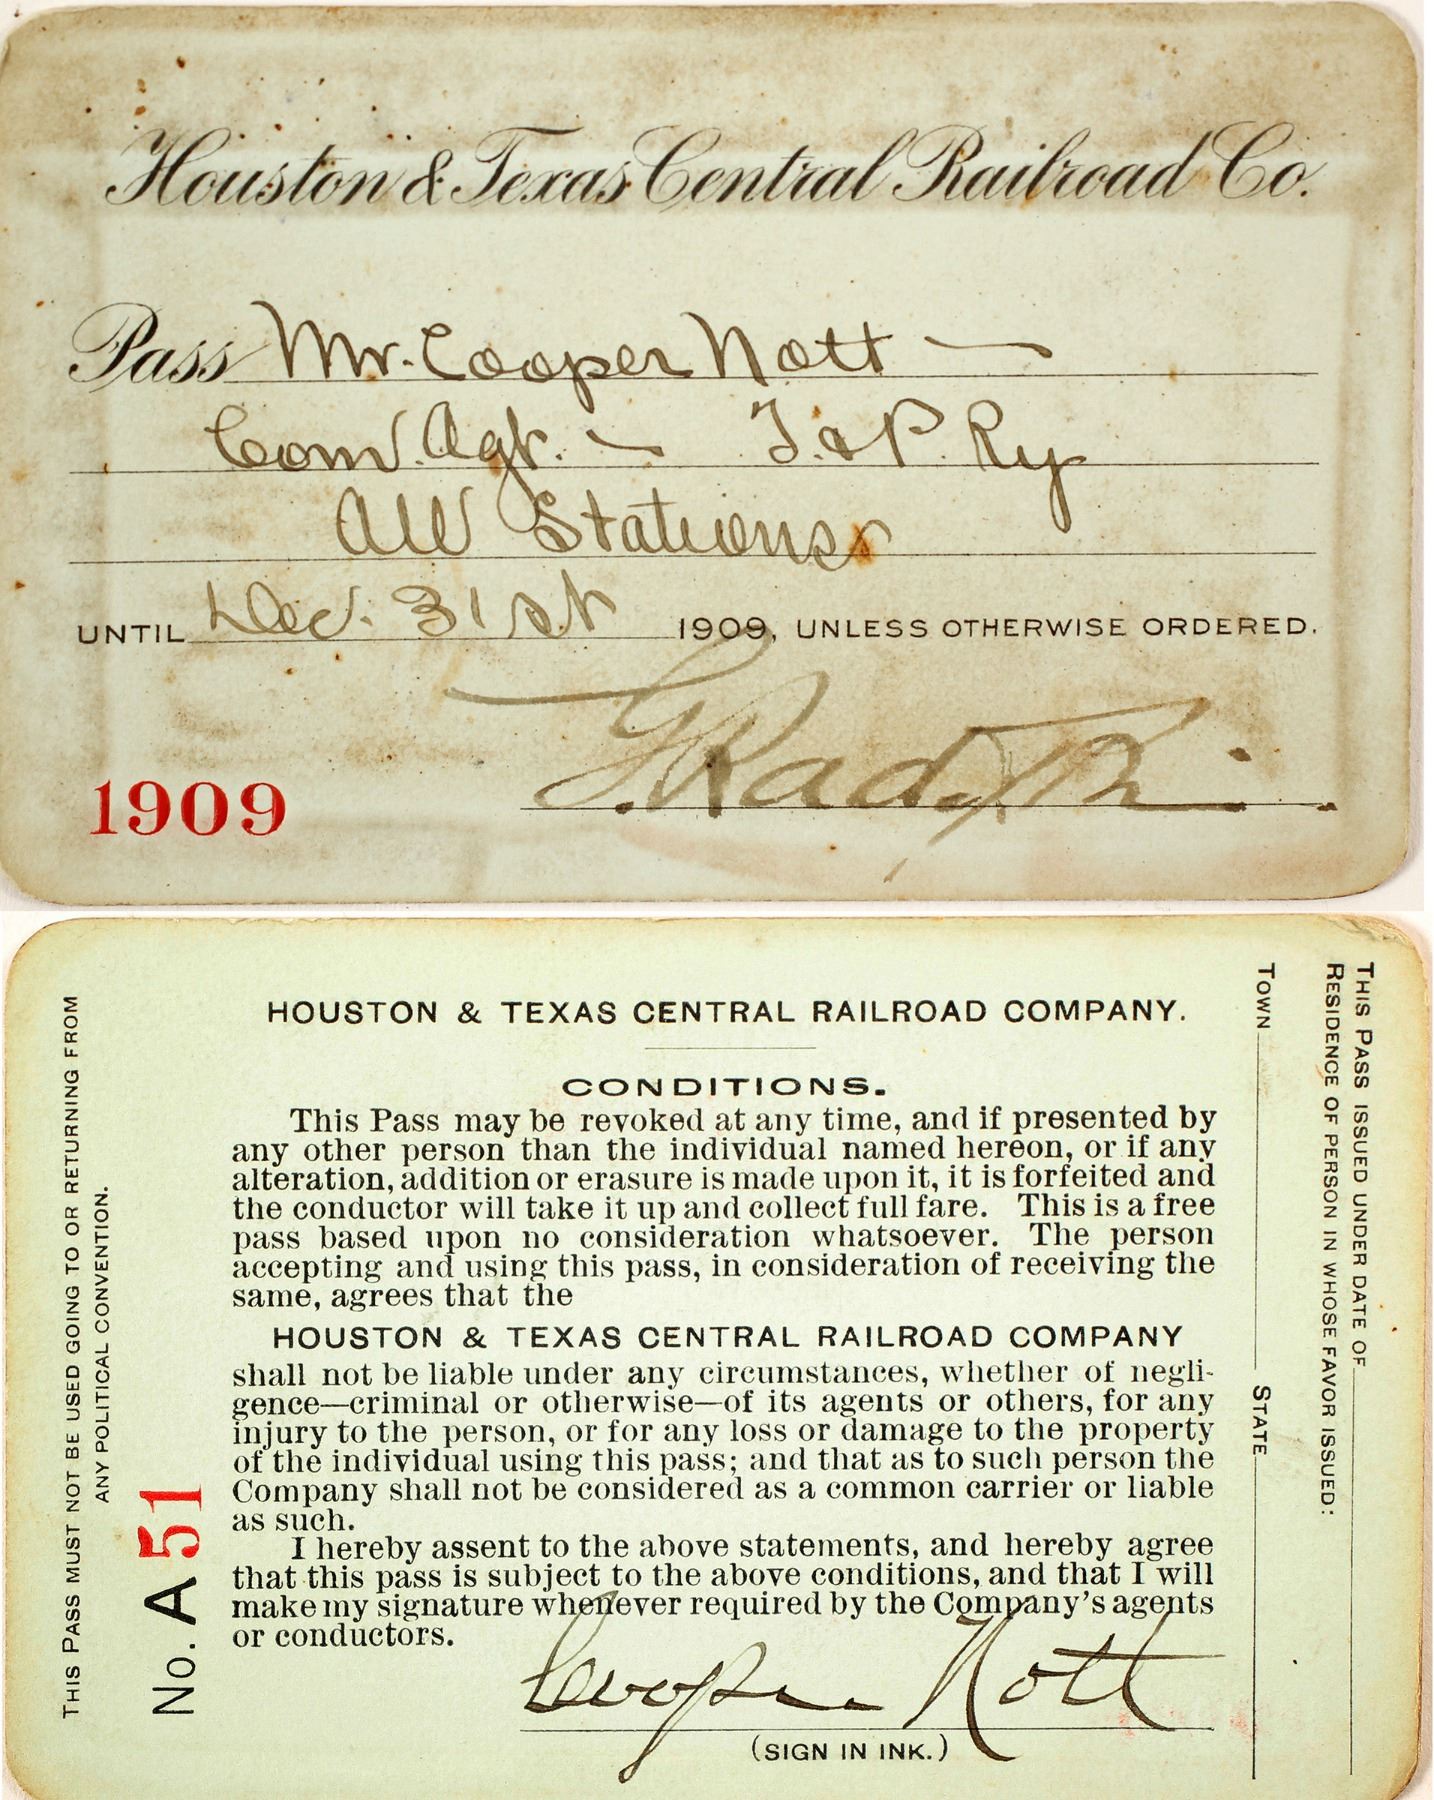 Houston & Texas Central Railroad Co.
Pass Mr. Cooper Nott —
Com'l. Agt. — T. & P. Ry
All Stations
UNTIL Dec. 31st 1909, UNLESS OTHERWISE ORDERED.
1909
HOUSTON & TEXAS CENTRAL RAILROAD COMPANY.
CONDITIONS.
This Pass may be revoked at any time, and if presented by
any other person than the individual named hereon, or if any
alteration, addition or erasure is made upon it, it is forfeited and
the conductor will take it up and collect full fare. This is a free
pass based upon no consideration whatsoever. The person
accepting and using this pass, in consideration of receiving the
same, agrees that the
HOUSTON & TEXAS CENTRAL RAILROAD COMPANY
shall not be liable under any circumstances, whether of negli-
gence—criminal or otherwise—of its agents or others, for any
injury to the person, or for any loss or damage to the property
of the individual using this pass; and that as to such person the
Company shall not be considered as a common carrier or liable
as such.
I hereby assent to the above statements, and hereby agree
that this pass is subject to the above conditions, and that I will
make my signature whenever required by the Company's agents
or conductors.
Cooper Nott
(SIGN IN INK.)
THIS PASS MUST NOT BE USED GOING TO OR RETURNING FROM
ANY POLITICAL CONVENTION.
No. A 51
THIS PASS ISSUED UNDER DATE OF
RESIDENCE OF PERSON IN WHOSE FAVOR ISSUED:
TOWN STATE